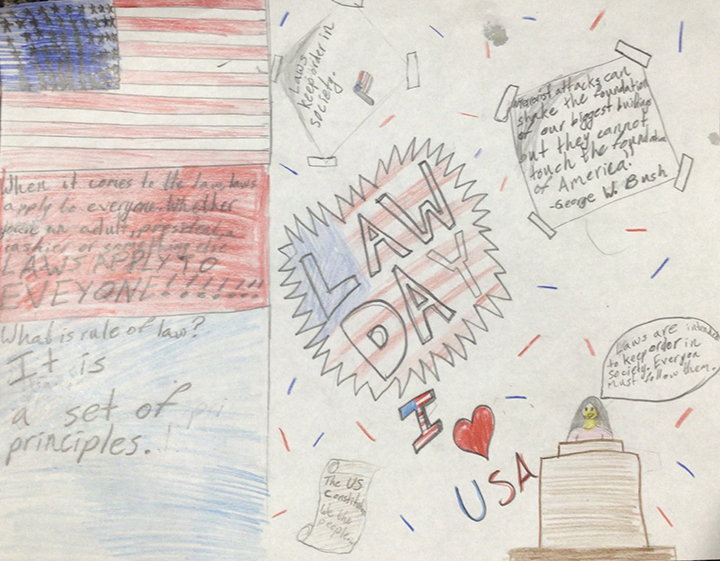 Laws
keep order in
society.
Terrorist attacks can
shake the foundation
of our biggest buildings
but they cannot
touch the foundation
of America."
-George W. Bush
When it comes to the law, laws
apply to everyone. Whether
you're an adult, president, a
cashier or something else
LAWS APPLY TO
EVEYONE!!!!!!!
LAW
DAY
What is rule of law?
It is
a set of
principles.
Laws are
to keep order in
society. Everyon
must follow them.
I
USA
The US
Constitution
We the
people